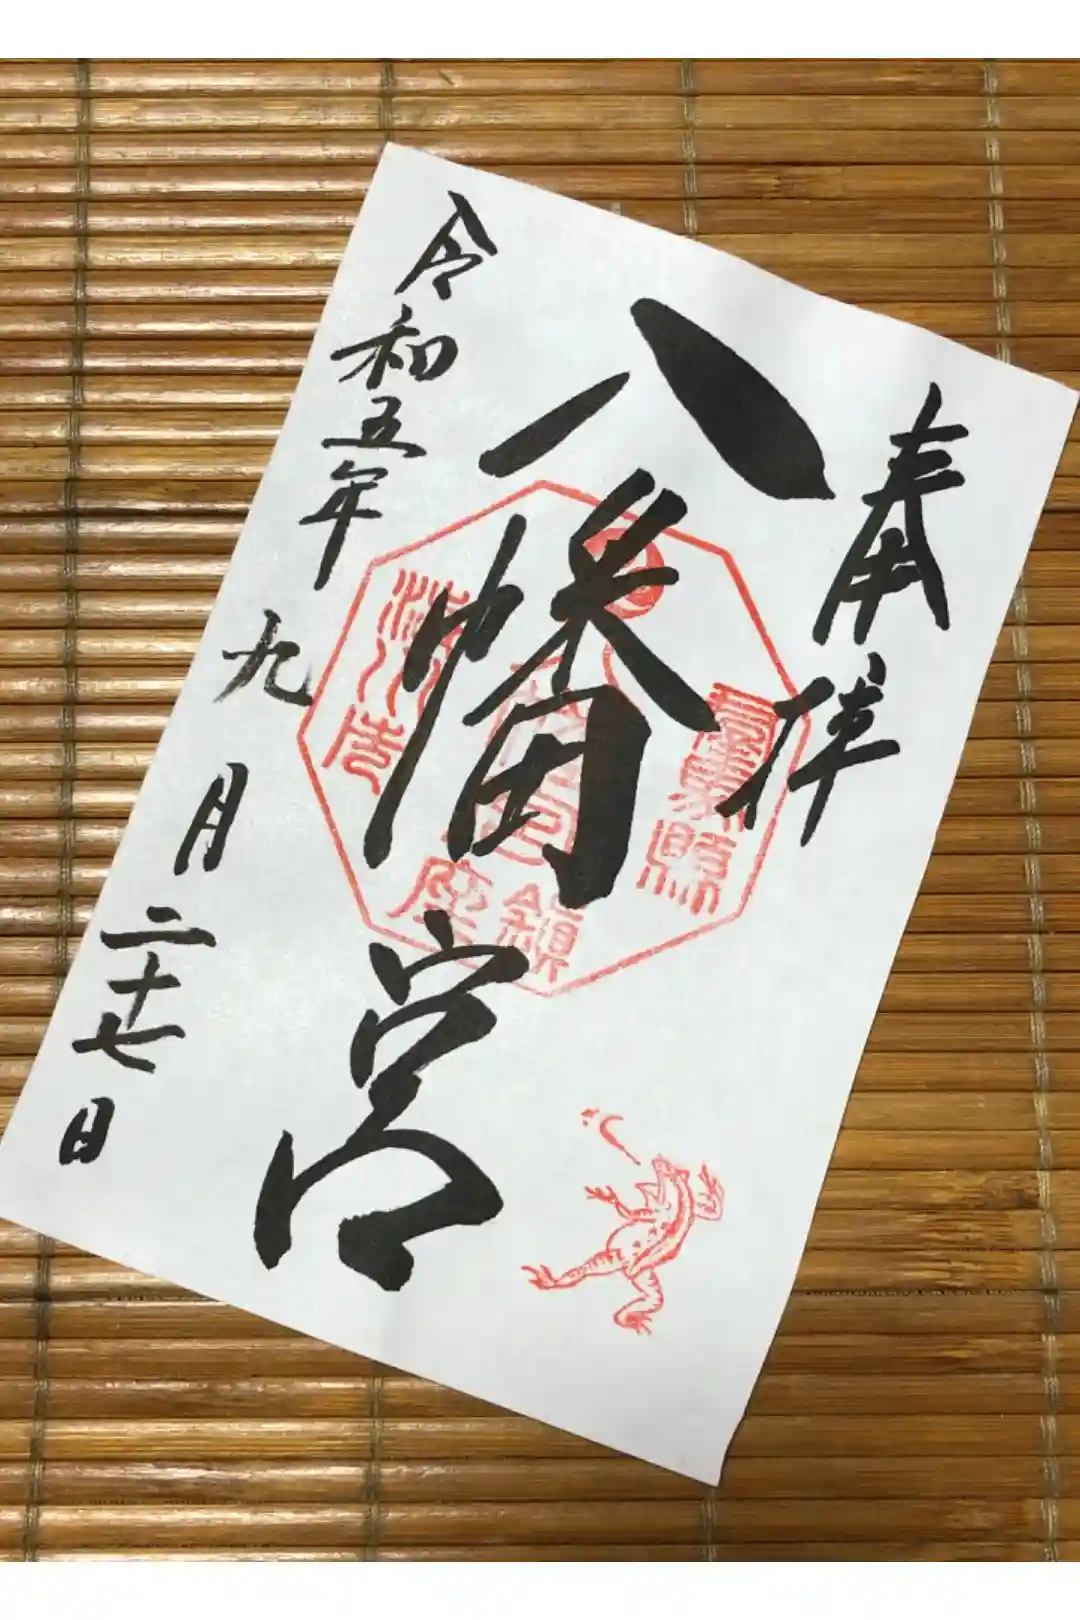 奉拝
八幡宮
令和五年九月二十七日
鎮座